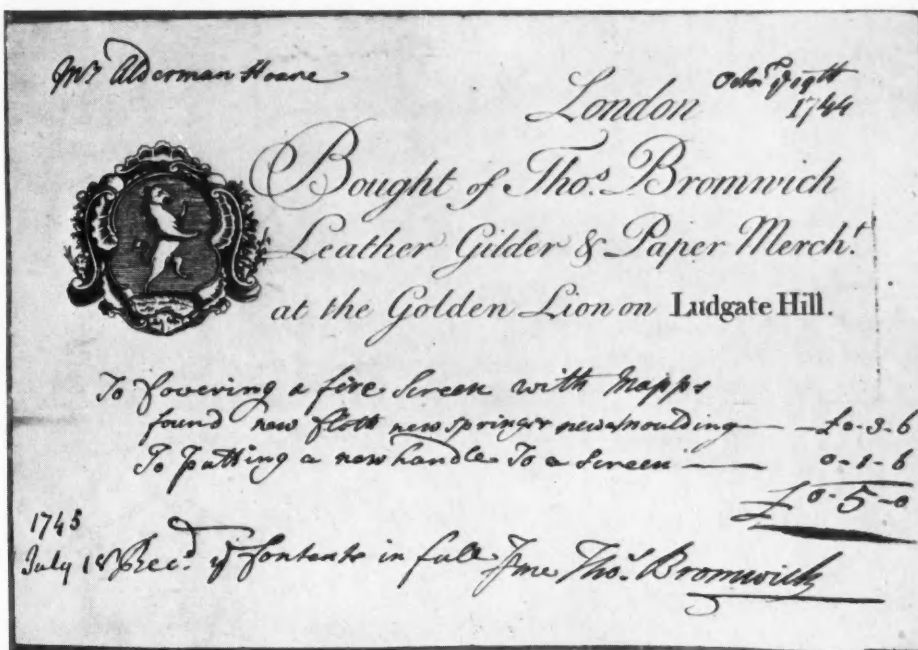 Mr Alderman Hoare
London Octor ye 19th
1744
Bought of Thos. Bromwich
Leather Gilder & Paper Mercht.
at the Golden Lion on Ludgate Hill.
To Covering a fire Screen with Mapps
found new Cloth new springs new moulding — £0-3-6
To putting a new handle To a Screen — 0-1-6
£0-5-0
1745
July 18 Recd. ye Contents in full Thos. Bromwich